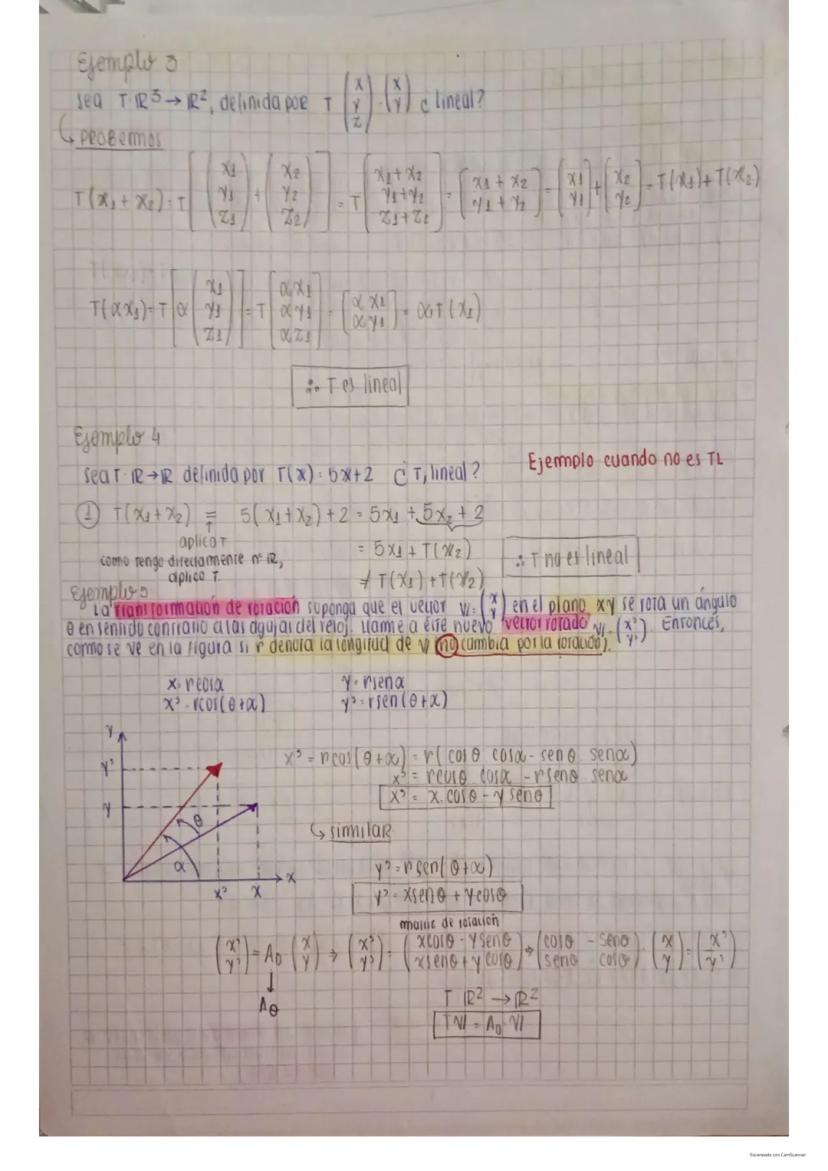 Ejemplo 3
sea T: R³ → R², definida por T (x y z) = (x y) ¿ lineal?
↳ probemos
T(x₁ + x₂) = T[(x₁ y₁ z₁) + (x₂ y₂ z₂)] = T[x₁+x₂ y₁+y₂ z₁+z₂] = [x₁ + x₂ y₁ + y₂] = (x₁ y₁) + (x₂ y₂) = T(x₁) + T(x₂)
T(αx₁) = T[α(x₁ y₁ z₁)] = T[αx₁ αy₁ αz₁] = [αx₁ αy₁] = αT(x₁)
∴ T es lineal
Ejemplo 4
Ejermplo cuando no es TL
sea T: R → R definida por T(x) = 5x+2 ¿ T, lineal?
① T(x₁+x₂) = 5(x₁+x₂)+2 = 5x₁ + 5x₂ + 2
T
aplico T
como tengo directamente nº R,
aplico T.
= 5x₁ + T(x₂)
≠ T(x₁) + T(x₂)
∴ T no es lineal
Ejemplo 5
La transformación de rotación suponga que el vector v = (x y) en el plano xy se rota un ángulo
θ en sentido contrario a las agujas del reloj. Llame a este nuevo vector rotado v' (x' y'). Entonces,
como se ve en la figura si r denota la longitud de v (no cambia por la rotación).
x = r cosα y = r senα
x' = r cos(θ+α) y' = r sen(θ+α)
y
y'
y
θ
α
x' x
x
x' = r cos(θ+α) = r( cosθ cosα - senθ senα)
x' = r cosθ cosα - r senθ senα
x' = x. cosθ - y senθ
↳ similar
y' = r sen(θ+α)
y' = x senθ + y cosθ
matriz de rotación
(x' y') = Aθ (x y) → (x' y') = (x cosθ - y senθ x senθ + y cosθ) → (cosθ -senθ senθ cosθ) · (x y) = (x' y')
↓
Aθ
T: R² → R²
Tv = Aθ · v
Escaneado con CamScanner